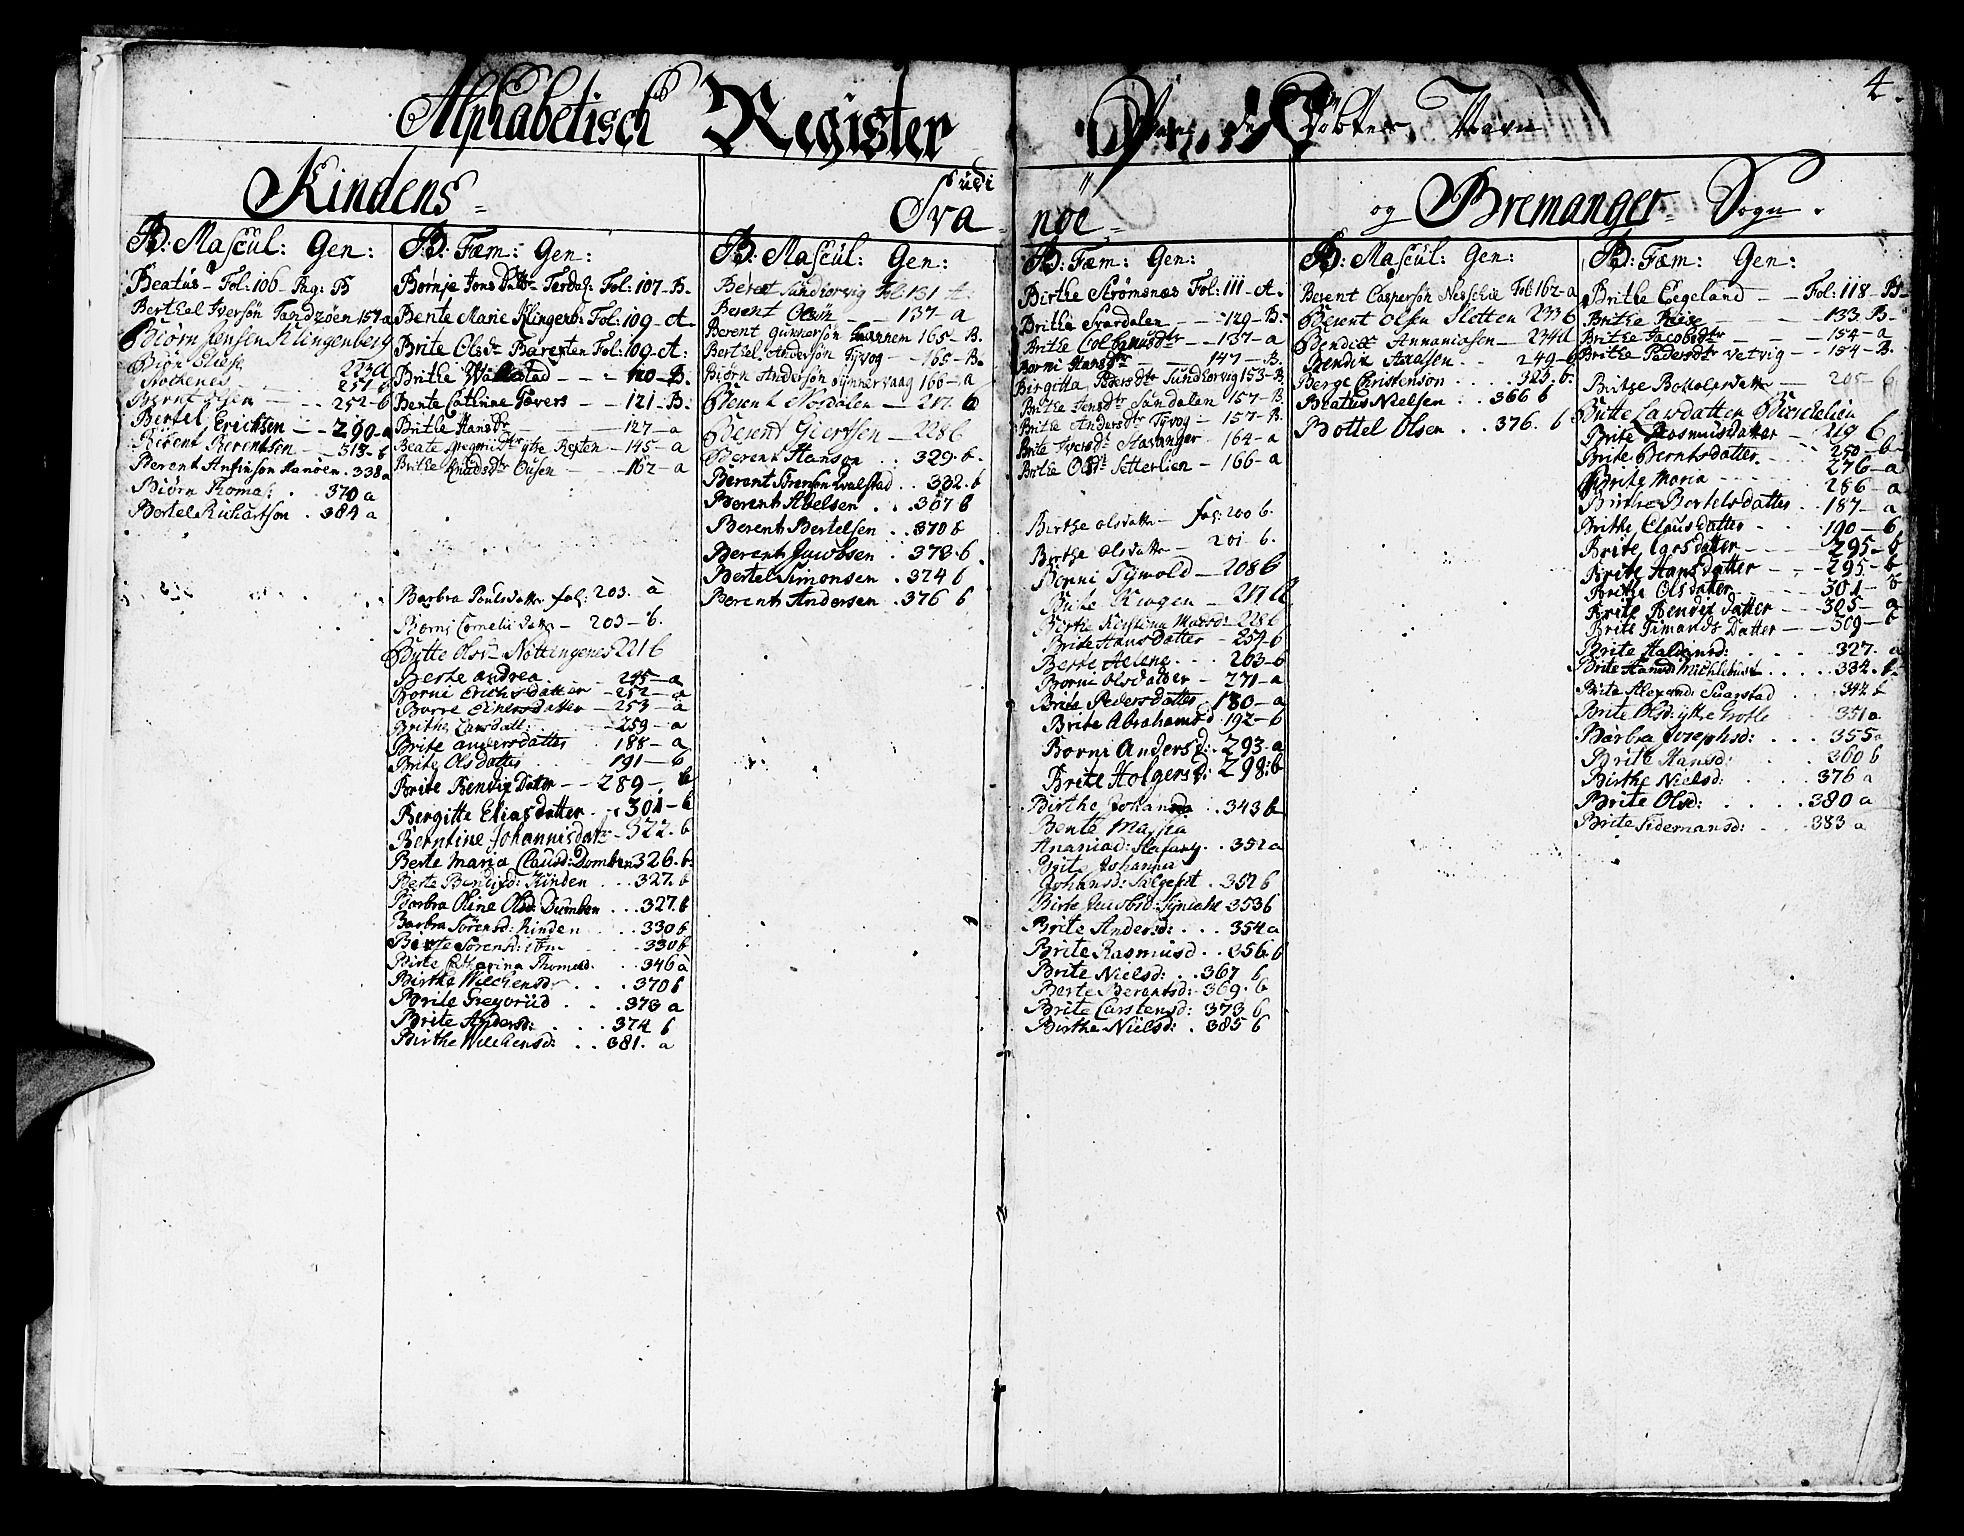 4.
Alphabetisch Register Over de Döbtes Navn
Kindens
Sva nöe
og Bremanger Sogn.
B: Mascul: Gen:
Beatus Fol: 106 Pag: B
Berthel Iversön Tandzöen 157 a
Biörn Jensen Klingenberg
223 a
251 b
252 b
Bertel Ericksen 290 a
Berent Berentsen 313 b
Berent Anfinsön 338 a
Biörn Thomas: 370 a
Bertel Richartson 384 a
B: Fæm: Gen:
Fol: 107 B.
Bente Marie Klingenb: Fol: 109 A
Brite Olsdr Barexten Fol: 109 A:
Brithe 120 B.
Bente Cathrine 121 B:
Brithe Hansdr 127 a
Beate Gregoridtr ytre Rexten 145 a
Brithe Knudsdtr 162 a
Barbra Poulsdatter fol: 203. a
Borni Cornelii datter 203 b.
Bytte Olsd Nöttingenes 221 b
Berte andrea 245 a
Borni Erichsdatter 252 a
253 a
Brithe Larsdatt: 259 a
Brite andersdatter 188 a
Brite Olsdatter 191 b
Brite Bendix Datter 289 b
Bergitte Eliasdatter 301 b
Berntine Johannisdatr 322. b
Berte Maria Clausd: Domben 326. b.
Berte Bendixd: Kinden 327. b
Barbra Oline Olsd: Domben 327. b
Barbra Sörensd: Kinden 330 b
Birte Sörensd: 330 b
Birte Catharina Thomesd. 346 a
Birthe Wilchensd: 370 b
Brite Gregorüd 373 a
Brite Andersd: 374 b
Birthe Wilchensd: 381. a
B: Mascul: Gen:
Berent Sundhorvig Fol: 131 A:
Berent 137 a
Berent Gunnersön 165 B.
Berthel Andersön Tyvog 165 B.
Biörn Andersön 166 a
Berent Nordalen 217 b
Berent Giertsen 228 b
Berent Hanson 329. b.
Berent Sörensen 332. b
Berent Abelsen 367 b
Berent Bertelsen 370 b
Berent Jacobsen 373. b
Bertel Simonsen 374 b
Berent Andersen 376 b
B: Fæm: Gen:
Birthe Strömsnæs Fol: 111 A.
Brithe Svardalen 129 B.
Brithe 137 a
Borni Hansdtr 147 B.
Birgitta Pedersdtr Sundhorvig 153 B.
Brithe Jensdtr Sandalen 157 B.
Brithe Andersdtr Tyvog 157 B.
Brite Iversdtr Stavanger 164 a
Brithe Olsdtr Setterlien 166 a
Birthe olsdatter fol: 200 b.
Birthe olsdatter 201 b.
Borni Tijwold 208 b
Brite Krogen 217 b
Birthe Kirstina 228 b
Brite Hansdatter 254 b
Berte Helene 263 b
Borni Olsdatter 271 a
Brite Pedersdatter 180 a
Brite Abrahamsd 192 b
Borni Andersd: 293 a
Brite Holgersd: 298: b
Birthe Johanna 343 b
Bente Maria
Ananiad: 352 a
Brite Johanna
Johansd: 352 b
Birte Jacobsd: 353 b
Brite Andersd: 354 a
Brite Rasmusd: 356 b
Brite Nielsd: 367 b
Berte Berentsd: 369. b
Brite Carstensd: 373 b
Birthe Nielsd: 385 b
B: Mascul: Gen:
Berent Caspersön Fol 162 a
Berent Olsen Sletten 233 b
Bendix Annaniasen 234 a
Bendix 249 b
Berge Christenson 323. b.
Beatus Nielsen 366 b
Bottel Olsen 376. b
B: Fæm: Gen:
Brithe Eegeland Fol: 118 B
Brithe 133 B
Brithe Jacobsdtr 154 a
Brithe Pedersdtr Vetvig 154 B.
Brithe Bottolsdatter 205 b
Bytte Larsdatter
Brite Rasmusdatter 219 b
Brite Berntsdatter 250 b
Birite Maria 276 a
286 a
Birthe Bertelsdatter 187 a
Brithe Clausdatter 190 b
Brite Larsdatter 295 b
Brite Hansdatter 295 b
Brithe Olsdatter 301 b
Brite Bendix datter 305 a
Brite Timands Datter 309 b
Brite 327. a
Brite Hansd: Michlebust 334. b
Brite Alexand: 342 b
Brite Olsd: ytre 351 a
Barbra Josephsd: 355 a
Brite Hansd: 360 b
Birthe Nielsd: 376 a
Brite Olsd: 380 a
Brite Tidemansd: 383 a